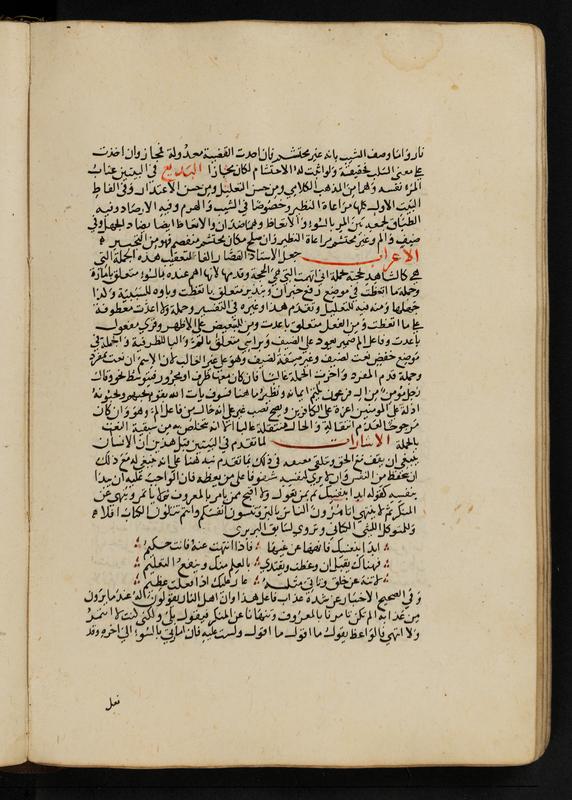 نار واما وصف الشيب بانه غير محتشم فان اخذت القضية معدولة فمجاز وان اخذت
على معنى السلب فحقيقة ولو اثبت له الاحتشام لكان مجازا البديع في البيتين عتاب
المرء نفسه وهما من المذهب الكلامي ومن حسن التعليل ومن حسن الاعتذار وفي الفاظ
البيت الاول كلها مراعاة النظير وخصوصا في الشيب والهرم وفيه الارصاد وفيه
الطباق لجمعه بين امر بالسوء والاتعاظ وهما ضدان والاتعاظ ايضا يضاد الجهل وفي
ضيف والم وغير محتشم مراعاة النظير وان صلح مكان محتشم منقصم فهو من التخيير
الاعراب جعل الاستاذ القصار الفاء للتعقيب هذه الجملة التي
هي كالشاهد لصحة جملة اني اتهمت التي هي الحجة وقدمها لانها اهم عنده بالسوء متعلق بامارة
وجملة ما اتعظت في موضع رفع خبر ان وبنذير متعلق باتعظت وباوه للسببية وكذا
جهلها ومنه فيه للتعليل وتقدم هذا وغيره في التفسير وجملة ولا اعدت معطوفة
على ما اتعظت ومن الفعل متعلق باعدت ومن للتبعيض على الاظهر وقرى مفعول
باعدت وفاعل الم ضمير يعود على الضيف وبراسي متعلق بالم والبا للظرفية والجملة في
موضع خفض نعت لضيف وغير صفة لضيف وهو على غير الغالب لان الاسم ان نعت بمفرد
وجملة قدم المفرد واخرت الجملة غالبا فان كان معهما ظرف او مجرور فمتوسط نحو وقال
رجل مؤمن من ال فرعون يكتم ايمانه ونظير ما هنا فسوف ياتي الله بقوم يحبهم ويحبونه
اذلة على المؤمنين اعزة على الكافرين ويصح نصب غير على انه حال من فاعل الم وهو وان كان
مرجوحا لعدم انتقاله والحال منتقلة غالبا الا انه يتخلص به من سبقية النعت
بالجملة الاشارات لما تقدم في البيتين قبل هذين ان الانسان
ينبغي ان يقف مع الحق ويتلقى معه في ذلك بما تقدم نبه هنا على انه ينبغي له مع ذلك
ان يتحفظ من النفس وان لا يرى لنفسه شفوفا على من يعظه فان الواجب عليه ان يبدا
بنفسه كقوله ابدا بنفسك ثم بمن تعول ولا اقبح ممن يامر بالمعروف ثم لا ياتمر وينهى عن
المنكر ثم لا ينتهي اتامرون الناس بالبر وتنسون انفسكم وانتم تتلون الكتاب افلا
وللمتوكل الليثي الكافي وتروى لسابق البربري
ابدا بنفسك فانهها عن غيها فاذا انتهت عنه فانت حكيم
فهناك يقبل ان وعظت ويقتدى بالعلم منك وينفع التعليم
لا تنه عن خلق وتاتي مثله عار عليك اذا فعلت عظيم
وفي الصحيح الاخبار عن شدة عذاب فاعل هذا وان اهل النار يقولون له عندما يرون
من عذابه الم تكن تامرنا بالمعروف وتنهانا عن المنكر فيقول بلى ولكني كنت لا ائتمر
ولا انتهي فالواعظ يقول ما اقول ما اقول ولست عليه فان امارتي بالسوء الى اخره وقد
نعل